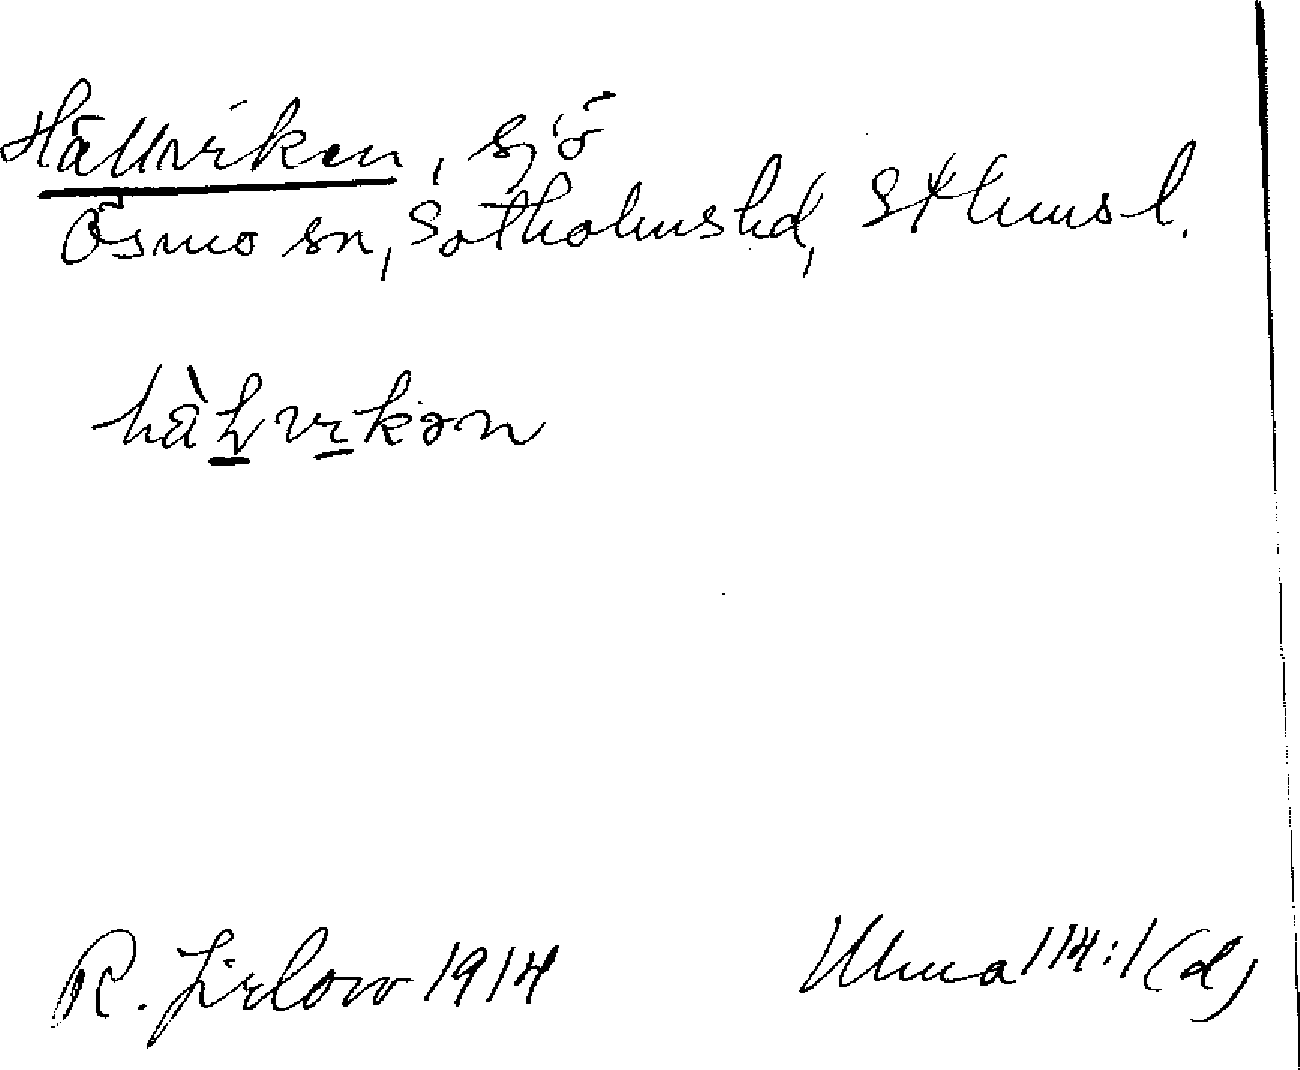 Hällviken, sjö
Ösmo sn, Sotholms hd, Sthms l.
hä̀lvikən
R. Jirlow 1914
Ulma 114:1(d)